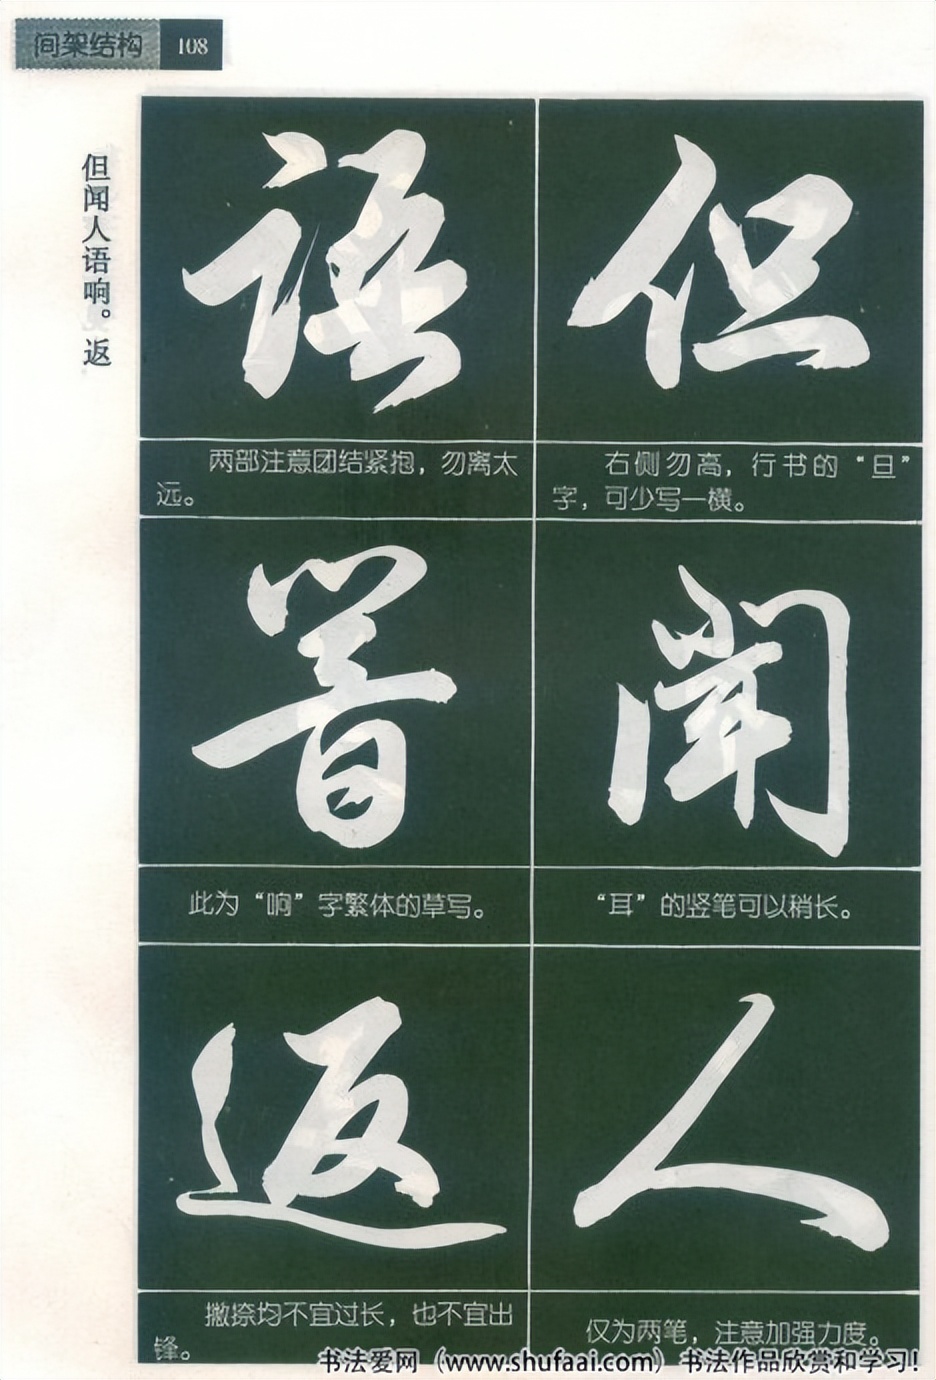 间架结构 108
但闻人语响。返
但
右侧勿高，行书的“旦”
字，可少写一横。
聞
“耳”的竖笔可以稍长。
人
仅为两笔，注意加强力度。
語
两部注意团结紧抱，勿离太
远。
響
此为“响”字繁体的草写。
返
撇捺均不宜过长，也不宜出
锋。
书法爱网（www.shufaai.com）书法作品欣赏和学习！